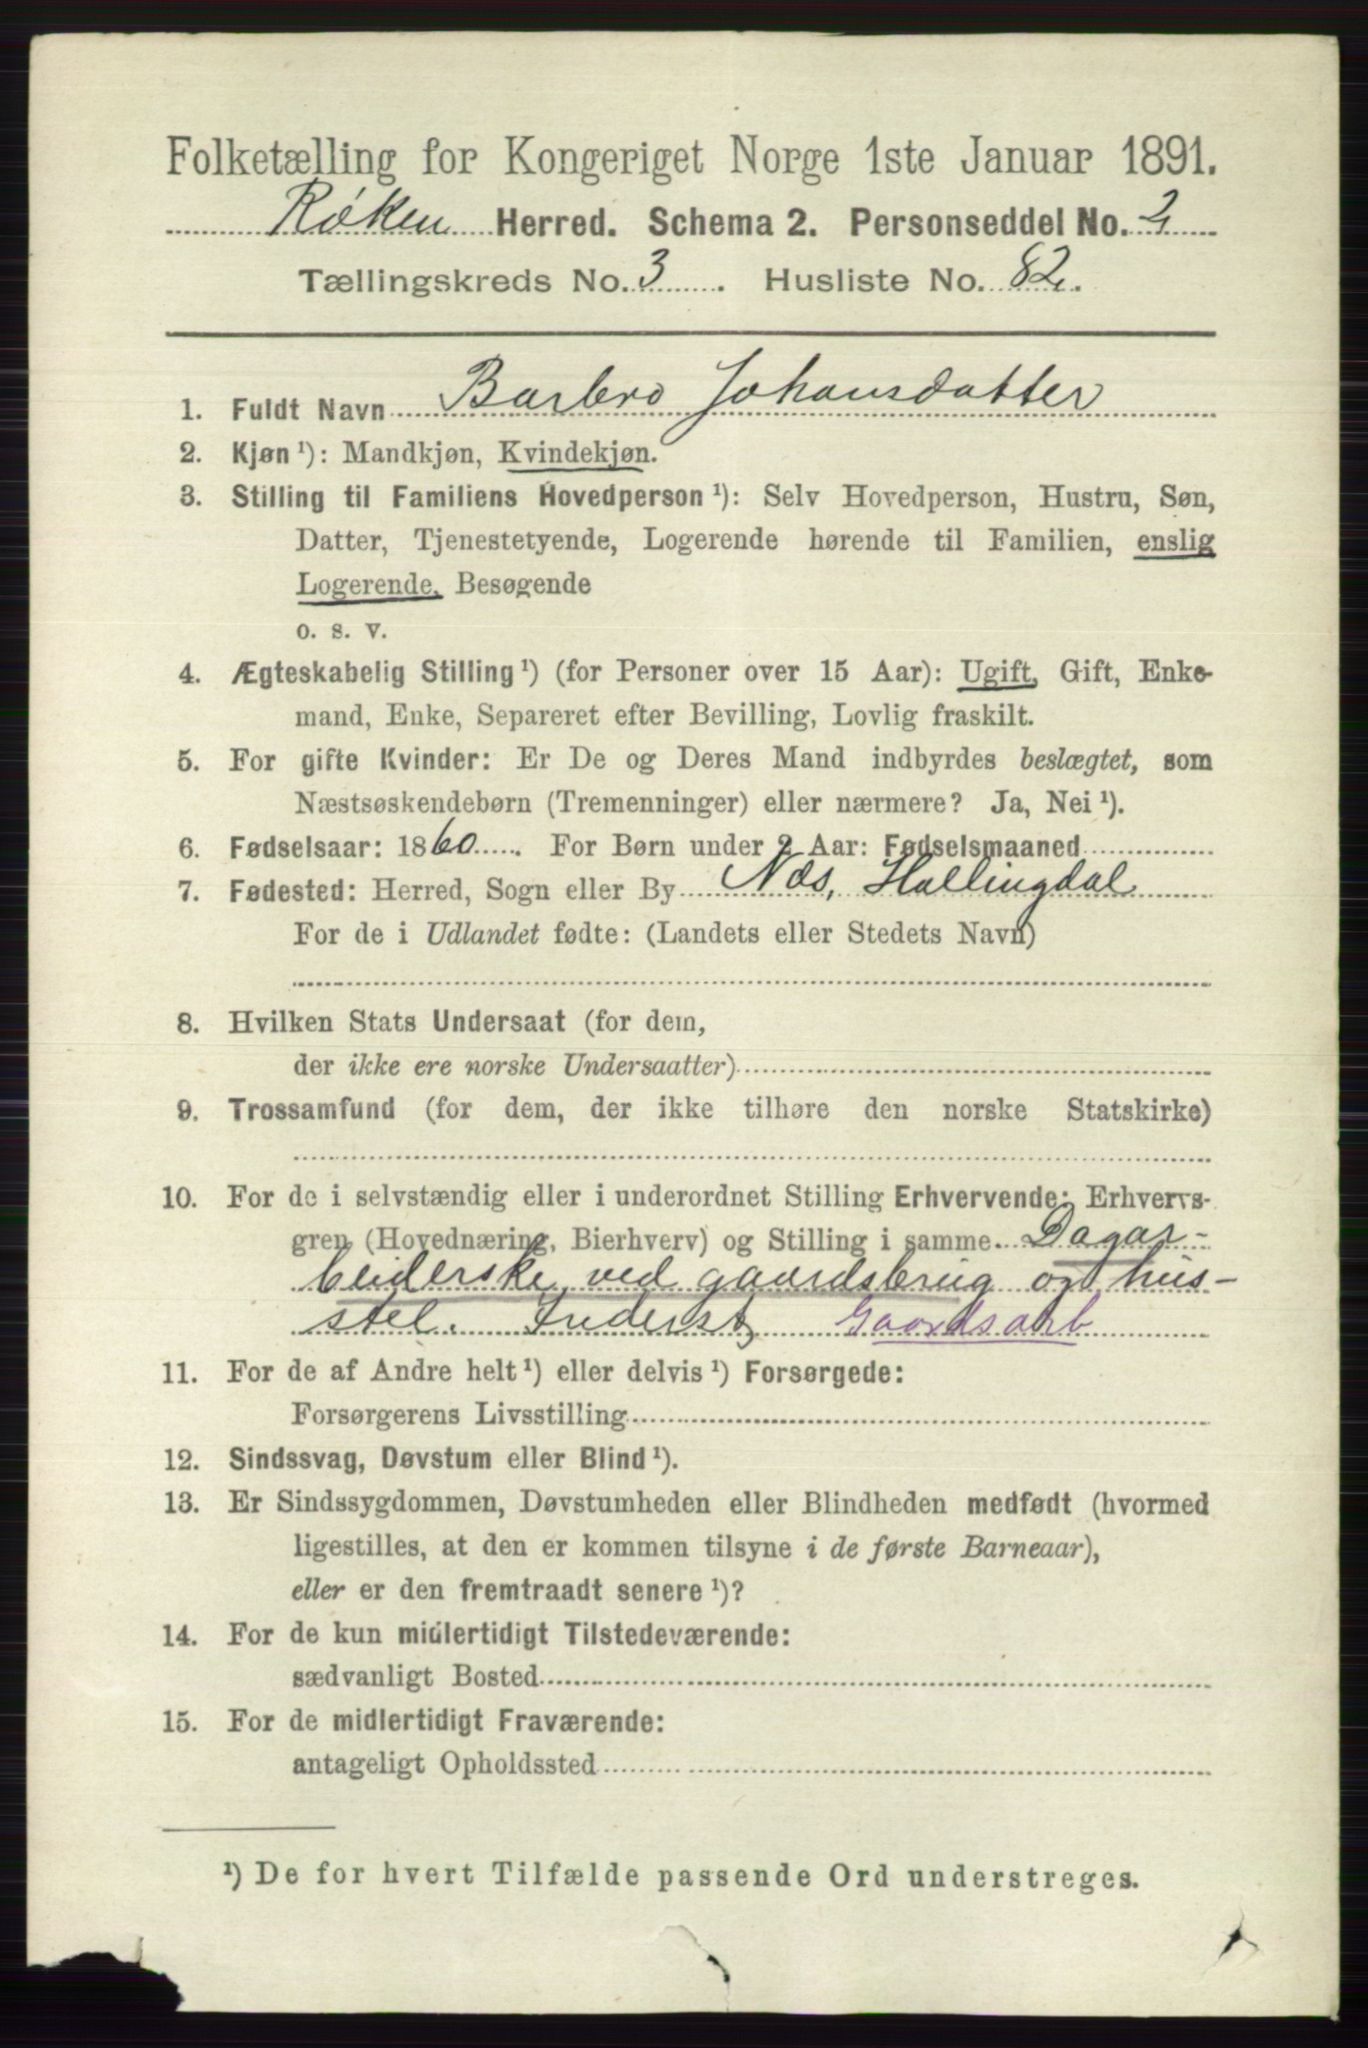 Folketælling for Kongeriget Norge 1ste Januar 1891.
Røken Herred. Schema 2. Personseddel No. 2
Tællingskreds No. 3. Husliste No. 82.
1. Fuldt Navn Barbro Johansdatter
2. Kjøn ¹): Mandkjøn, Kvindekjøn.
3. Stilling til Familiens Hovedperson ¹): Selv Hovedperson, Hustru, Søn,
Datter, Tjenestetyende, Logerende hørende til Familien, enslig
Logerende, Besøgende
o. s. v.
4. Ægteskabelig Stilling ¹) (for Personer over 15 Aar): Ugift, Gift, Enke-
mand, Enke, Separeret efter Bevilling, Lovlig fraskilt.
5. For gifte Kvinder: Er De og Deres Mand indbyrdes beslægtet, som
Næstsøskendebørn (Tremenninger) eller nærmere? Ja, Nei ¹).
6. Fødselsaar: 1860. For Børn under 2 Aar: Fødselsmaaned
7. Fødested: Herred, Sogn eller By Næs, Hallingdal
For de i Udlandet fødte: (Landets eller Stedets Navn)
8. Hvilken Stats Undersaat (for dem,
der ikke ere norske Undersaatter)
9. Trossamfund (for dem, der ikke tilhøre den norske Statskirke)
10. For de i selvstændig eller i underordnet Stilling Erhvervende: Erhvervs-
gren (Hovednæring, Bierhverv) og Stilling i samme. Dagar-
beiderske ved gaardsbrug og hus-
stel. Inderst, Gaardsarb
11. For de af Andre helt ¹) eller delvis ¹) Forsørgede:
Forsørgerens Livsstilling
12. Sindssvag, Døvstum eller Blind ¹).
13. Er Sindssygdommen, Døvstumheden eller Blindheden medfødt (hvormed
ligestilles, at den er kommen tilsyne i de første Barneaar),
eller er den fremtraadt senere ¹)?
14. For de kun midlertidigt Tilstedeværende:
sædvanligt Bosted
15. For de midlertidigt Fraværende:
antageligt Opholdssted
¹) De for hvert Tilfælde passende Ord understreges.